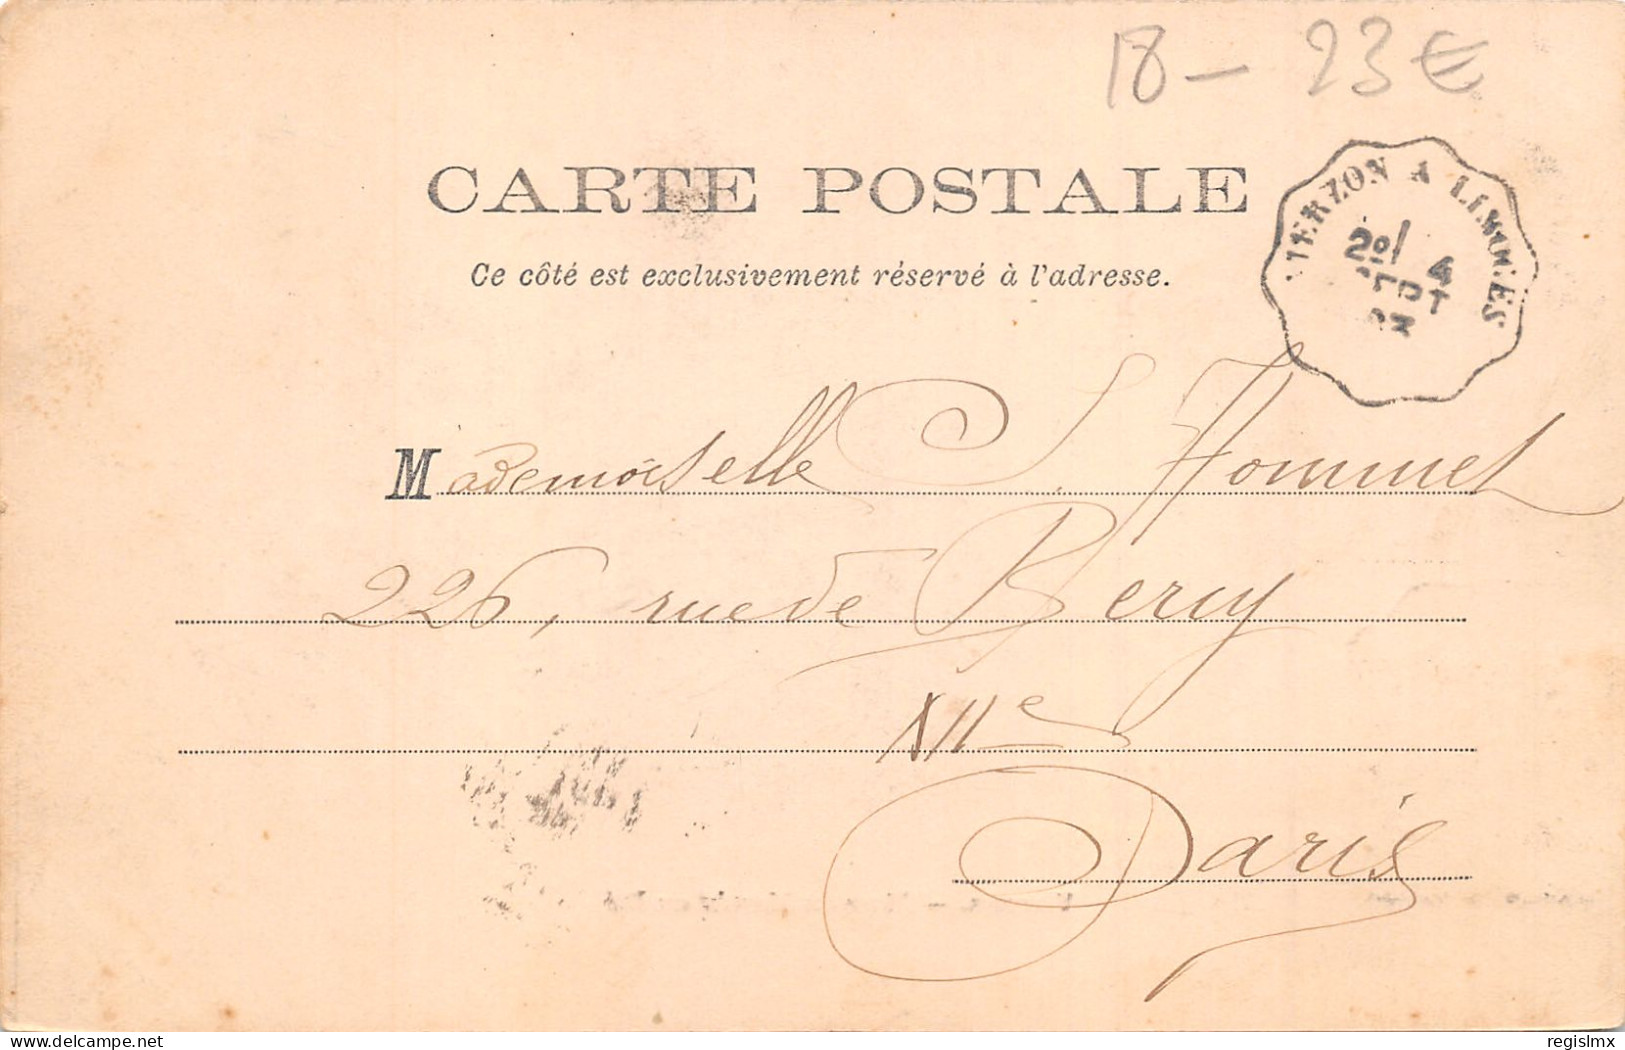 18 – 23€
CARTE POSTALE
Ce côté est exclusivement réservé à l'adresse.
VIERZON A LIMOGES
2º/ 4
SEPT
03
Mademoiselle S. Hommet
226, rue de Bercy
XIIe
Paris
delcampe.net
regislmx